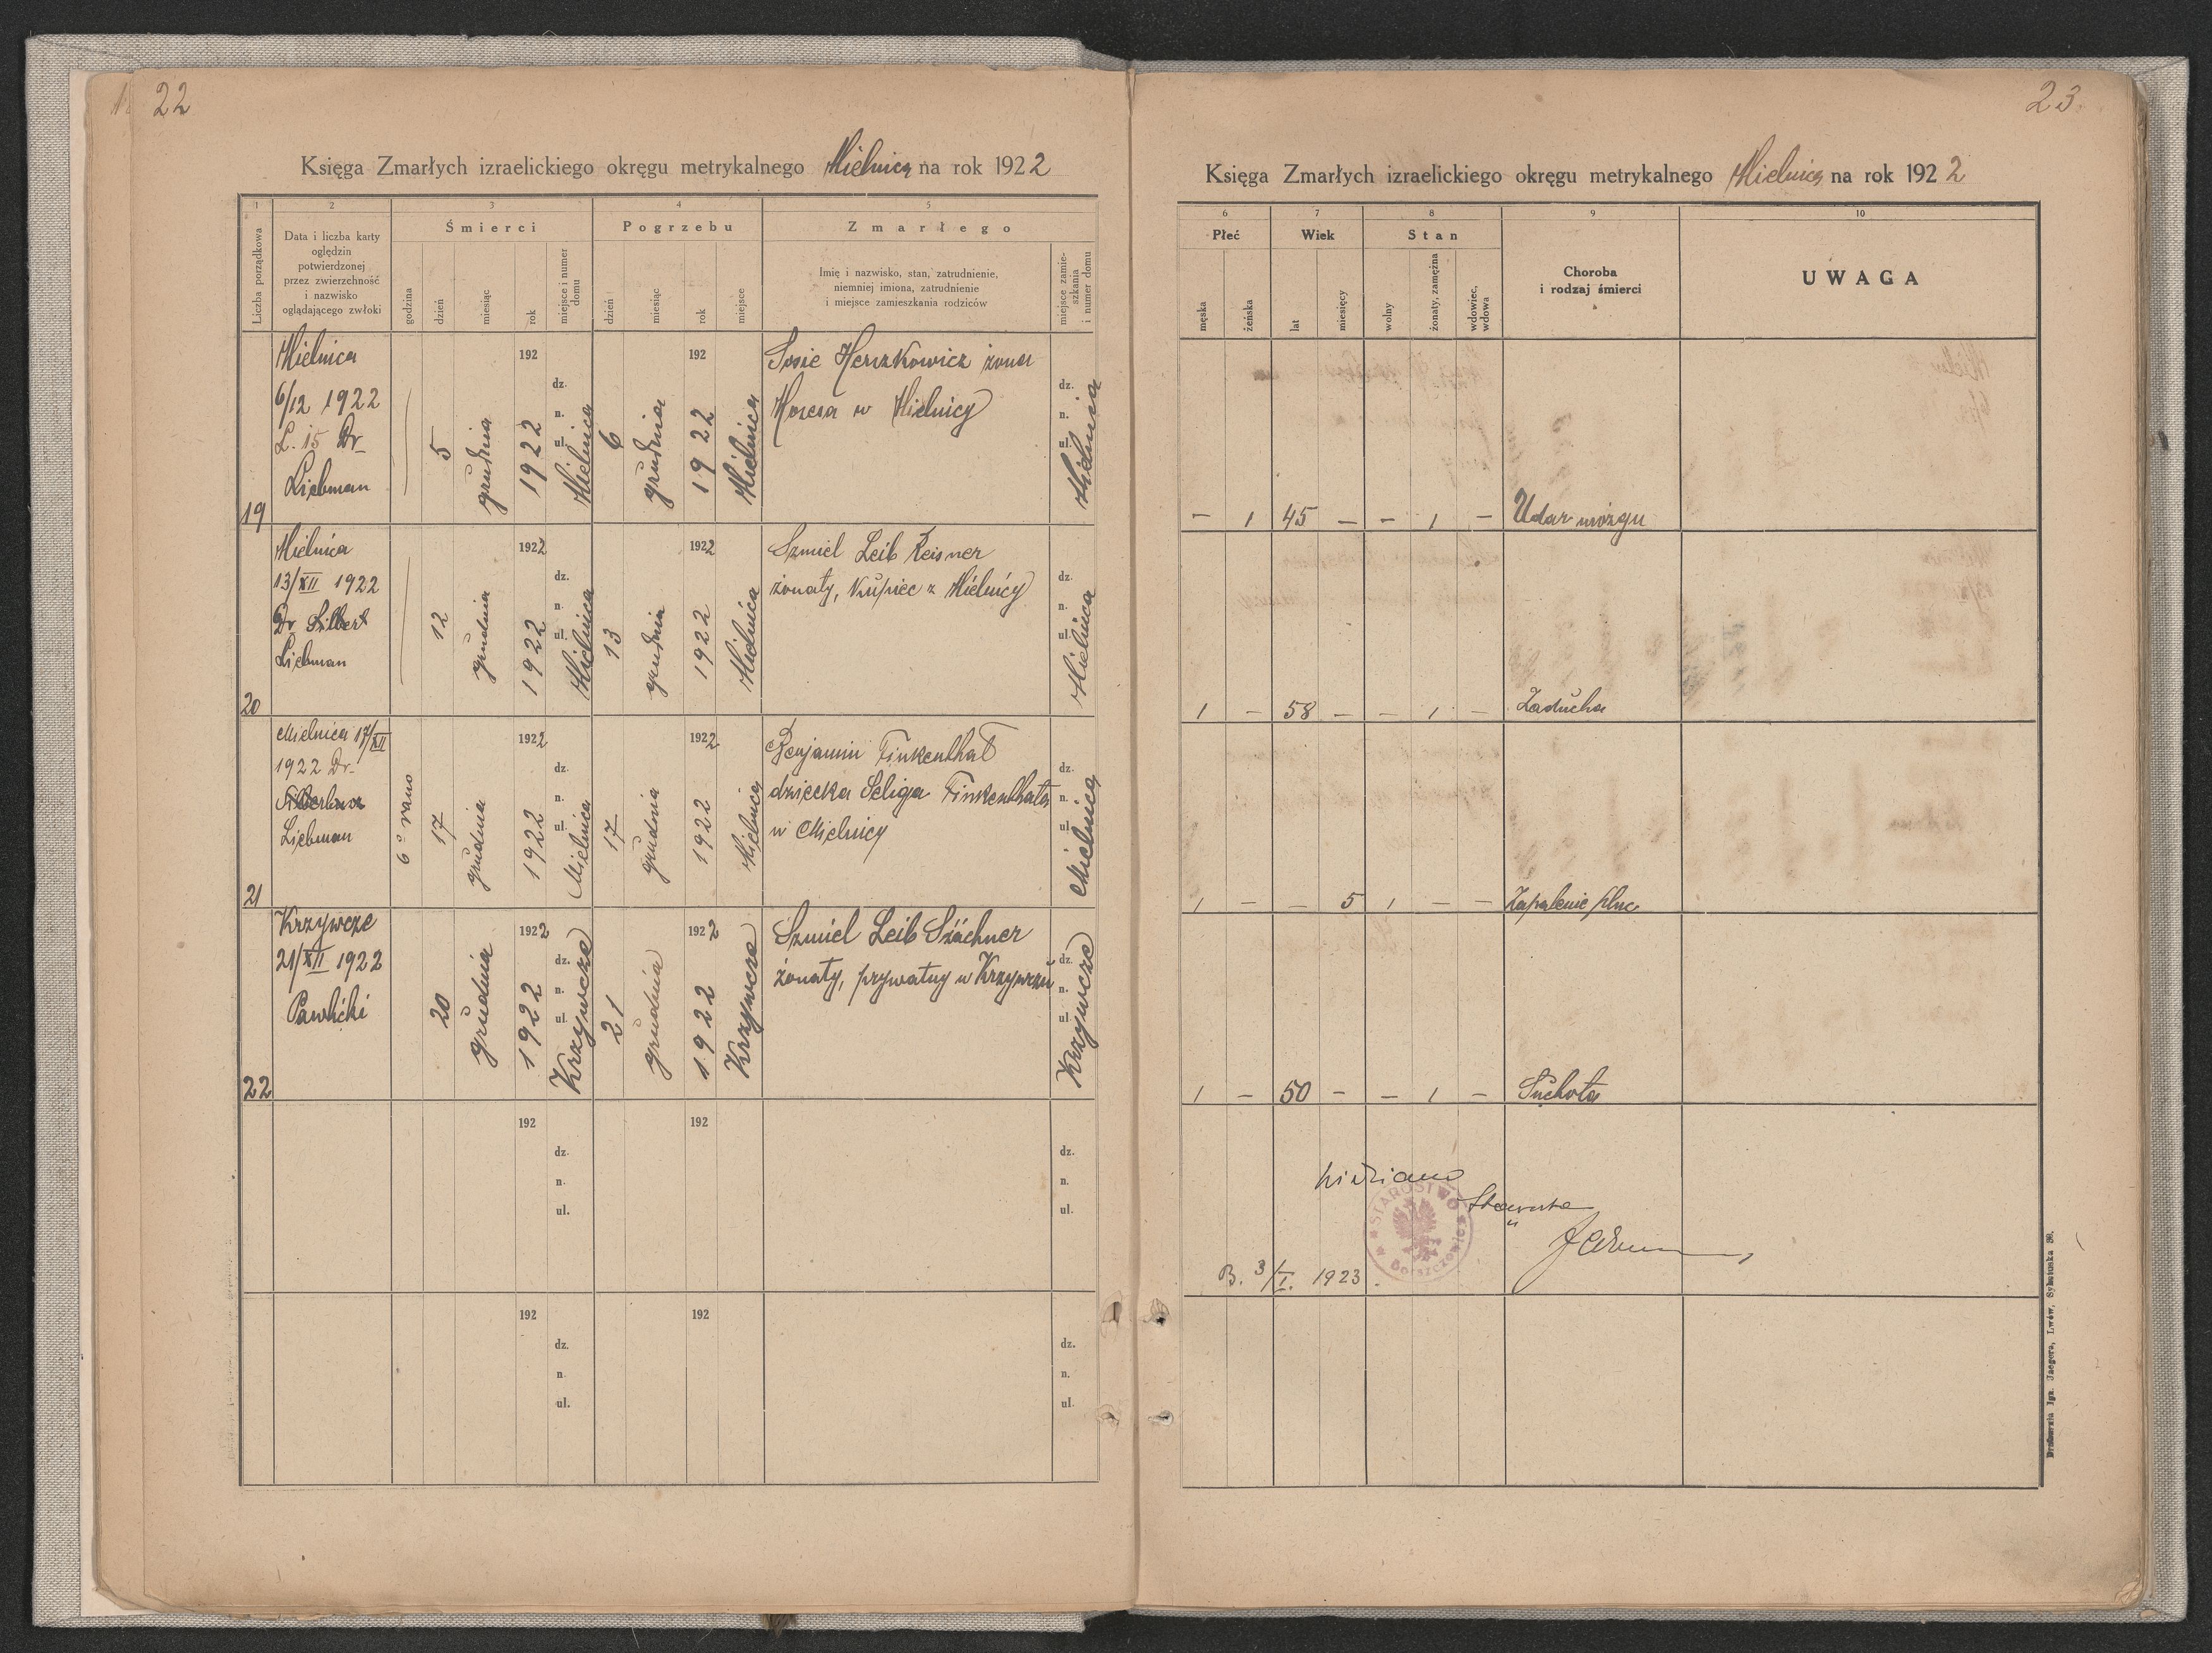 22
Księga Zmarłych izraelickiego okręgu metrykalnego Mielnica na rok 1922
1 2 3 4 5
Liczba porządkowa
Data i liczba karty
oględzin
potwierdzonej
przez zwierzchność
i nazwisko
oglądającego zwłoki
Śmierci
godzina
dzień
miesiąc
rok
miejsce i numer
domu
Pogrzebu
dzień
miesiąc
rok
miejsce
Zmarłego
Imię i nazwisko, stan, zatrudnienie,
niemniej imiona, zatrudnienie
i miejsce zamieszkania rodziców
miejsce zamie-
szkania
i numer domu
19
Mielnica
6/12 1922
L. 15 Dr
Liebman
5
grudnia
192
1922
dz.
n.
ul.
Mielnica
6
grudnia
192
1922
Mielnica
Sosie Herszkowicz żona
Mozesa w Mielnicy
dz.
n.
ul.
Mielnica
20
Mielnica
13/XII 1922
Dr Silbert
Liebman
12
grudnia
1922
1922
dz.
n
ul.
Mielnica
13
grudnia
1922
1922
Mielnica
Szmiel Leib Reisner
żonaty, kupiec z Mielnicy
dz.
n.
ul.
Mielnica
21
Mielnica 17/XII
1922 Dr.
Liebman
6° rano
17
grudnia
1922
1922
dz.
n.
ul.
Mielnica
17
grudnia
1922
1922
Mielnica
Benjamin Finkenthal
dziecko Seliga Finkenthala
w Mielnicy
dz.
n.
ul.
Mielnica
22
Krzywcze
21/XII 1922
Pawlicki
20
grudnia
1922
1922
dz.
n.
ul.
Krzywcze
21
grudnia
1922
1922
Krzywcze
Szmiel Leib Szächner
żonaty, prywatny w Krzywczu
dz.
n.
ul.
Krzywcze
192
dz.
n.
ul.
192
dz.
n.
ul.
192
dz.
n.
ul.
192
dz.
n.
ul.
23
Księga Zmarłych izraelickiego okręgu metrykalnego Mielnica na rok 1922
6 7 8 9 10
Płeć
męska
żeńska
Wiek
lat
miesięcy
Stan
wolny
żonaty, zamężna
wdowiec,
wdowa
Choroba
i rodzaj śmierci
UWAGA
– 1 45 – – 1 – Udar mózgu
1 – 58 – – 1 – Zaducha
1 – – 5 1 – – Zapalenie płuc
1 – 50 – – 1 – Suchota
Widziano
STAROSTWO
Borszczowie
Starosta
B. 3/I. 1923.
Drukarnia Ign. Jaegera, Lwów, Sykstuska 36.